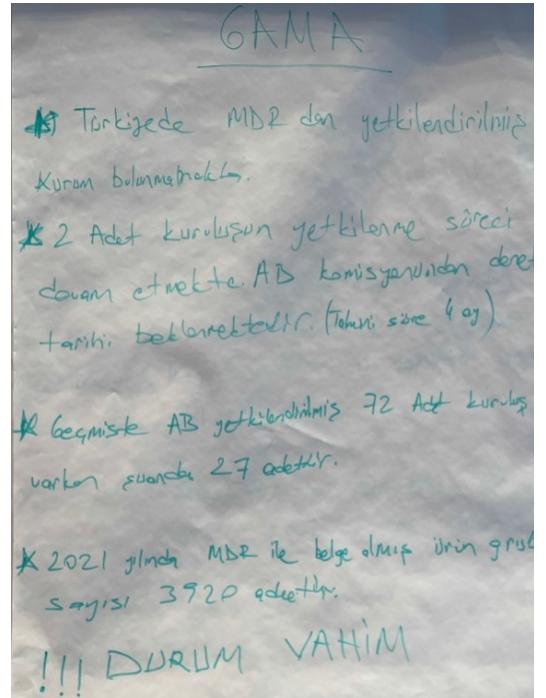 GAMA
Türkiyede MDR dan yetkilendirilmiş
Kurum bulunmamakta.
2 Adet kuruluşun yetkilenme süreci
devam etmekte. AB komisyonundan denet
tarihi beklenmektedir. (Tahmini süre 4 ay)
Geçmişte AB yetkilendirilmiş 72 Adet kuruluş
varken şuanda 27 adettir.
2021 yılında MDR ile belge almış ürün grub
sayısı 3920 adettir.
!!! DURUM VAHİM